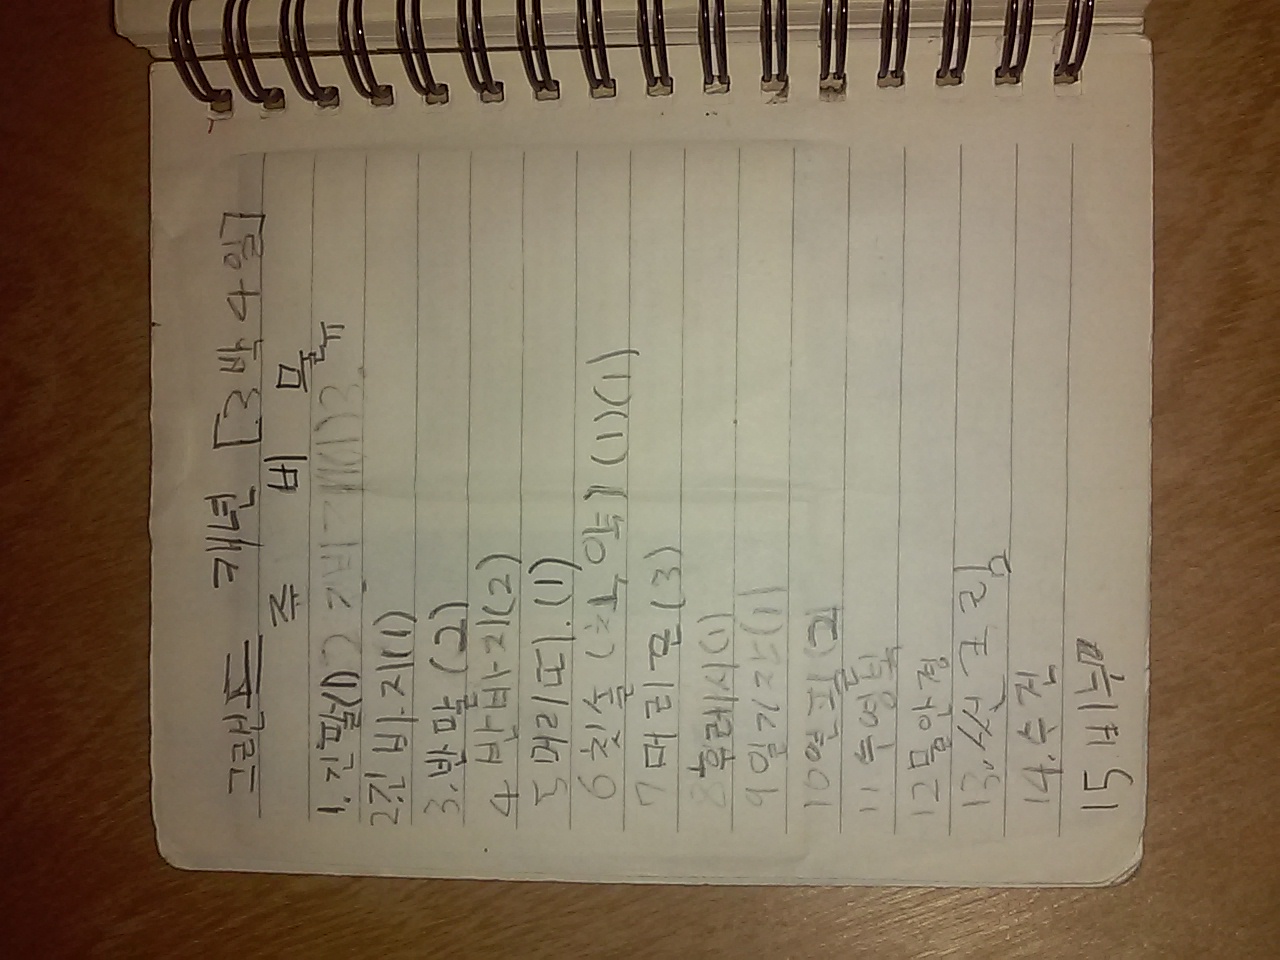 그랜드 캐년 [3박 4일]
준 비 물
1. 긴팔(1)
2. 긴 바지(1)
3. 반팔 (2)
4 반바지(2)
5 머리띠.(1)
6 칫솔 (치약) (1)(1)
7 머리끈(3)
8 후레시(1)
9 일기장(1)
10 연필(2)
11 수영복
12 물안경
13. 썬크림
14. 수건
15 비누